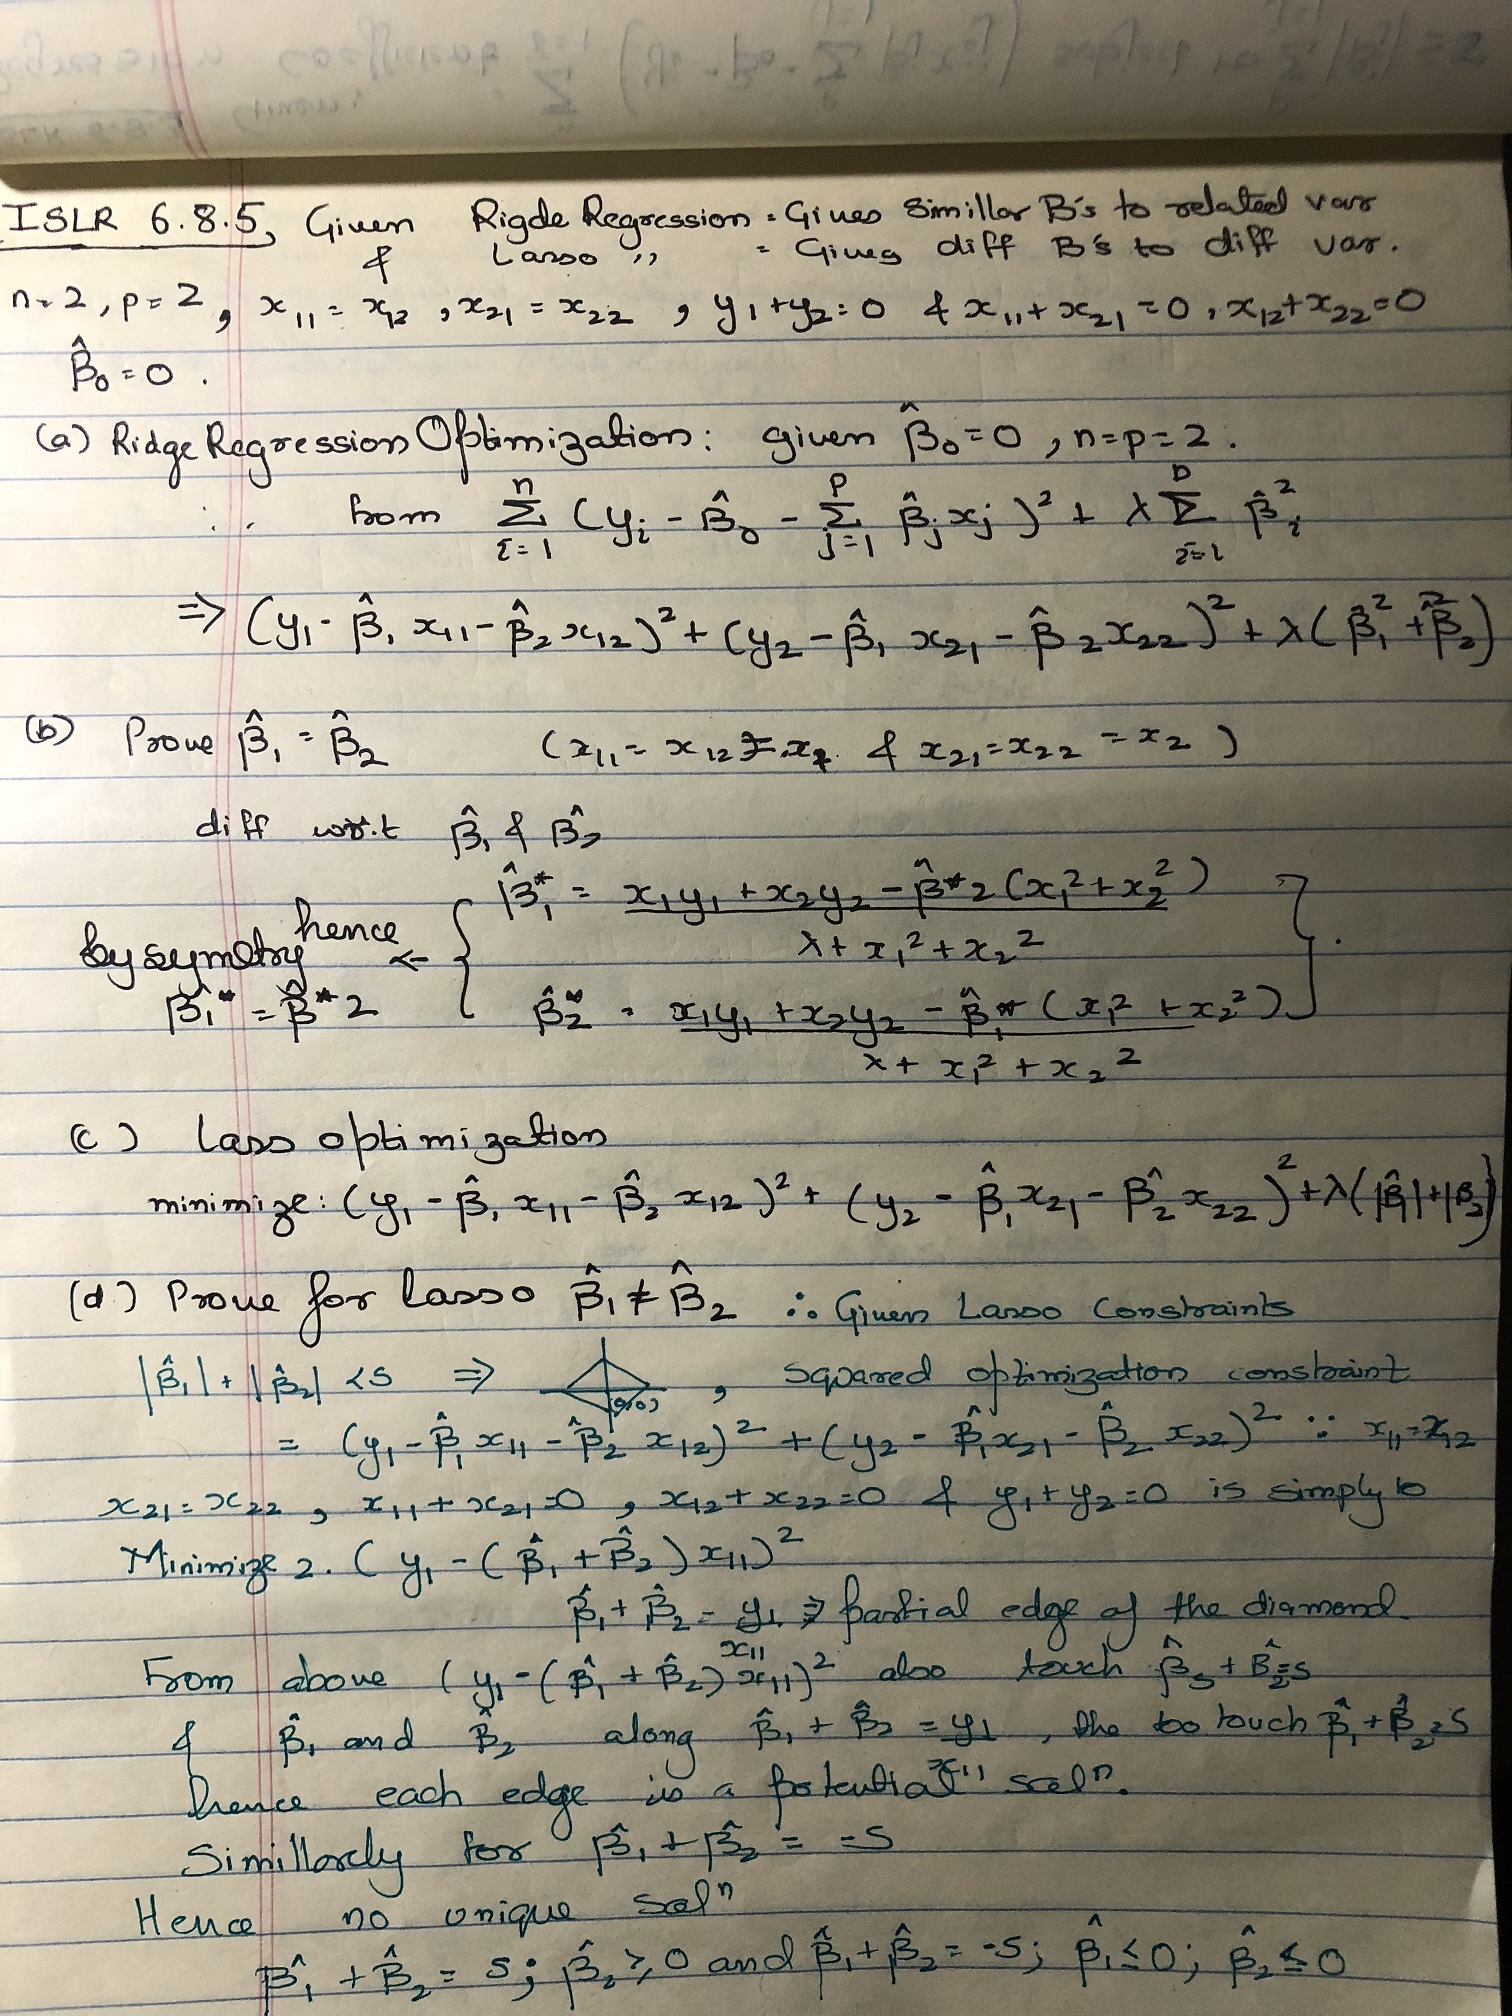 ISLR 6.8.5, Given Rigde Regression = Gives Simillar B's to related var
& Lasso ,, = Gives diff B's to diff var.
n=2, p=2, x₁₁ = x₁₂, x₂₁ = x₂₂, y₁+y₂=0 & x₁₁+x₂₁=0, x₁₂+x₂₂=0
β̂₀=0.
(a) Ridge Regression Optimization: given β̂₀=0, n=p=2.
∴ from Σⁿᵢ₌₁ (yᵢ - β̂₀ - Σᵖⱼ₌₁ β̂ⱼxⱼ)² + λ Σᵖᵢ₌₁ β̂ᵢ²
=> (y₁ - β̂₁ x₁₁ - β̂₂ x₁₂)² + (y₂ - β̂₁ x₂₁ - β̂₂ x₂₂)² + λ(β̂₁² + β̂₂²)
(b) Prove β̂₁ = β̂₂ (x₁₁ = x₁₂ = x₁ & x₂₁=x₂₂ = x₂)
diff w.r.t β̂₁ & β̂₂
β̂₁* = x₁y₁ + x₂y₂ - β̂*2 (x₁²+x₂²)
λ + x₁² + x₂²
hence
by symetry
β̂₁* = β̂*2
β̂₂* = x₁y₁ + x₂y₂ - β̂₁* (x₁² + x₂²)
λ + x₁² + x₂²
(c) Lasso optimization
minimize: (y₁ - β̂₁ x₁₁ - β̂₂ x₁₂)² + (y₂ - β̂₁ x₂₁ - β̂₂ x₂₂)² + λ(|β̂₁|+|β₂|)
(d) Prove for Lasso β̂₁ ≠ β̂₂ ∴ Given Lasso Constraints
|β̂₁| + |β̂₂| < s => (0,0), squared optimization constraint
= (y₁ - β̂₁ x₁₁ - β̂₂ x₁₂)² + (y₂ - β̂₁x₂₁ - β̂₂ x₂₂)² ∵ x₁₁=x₁₂
x₂₁ = x₂₂, x₁₁ + x₂₁=0, x₁₂ + x₂₂=0 & y₁+y₂=0 is simply to
Minimize 2. (y₁ - (β̂₁ + β̂₂) x₁₁)²
β̂₁ + β̂₂ = y₁/x₁₁ => partial edge of the diamond
From above (y₁ - (β̂₁ + β̂₂) x₁₁)² also touch β̂₁ + β̂₂=s
& β̂₁ and β̂₂ along β̂₁ + β̂₂ = y₁/x₁₁, the too touch β̂₁ + β̂₂ = s
hence each edge is a potential solⁿ.
Simillarly for β̂₁ + β̂₂ = -s
Hence no unique solⁿ
β̂₁ + β̂₂ = s; β̂₂ ≥ 0 and β̂₁ + β̂₂ = -s; β̂₁ ≤ 0; β̂₂ ≤ 0